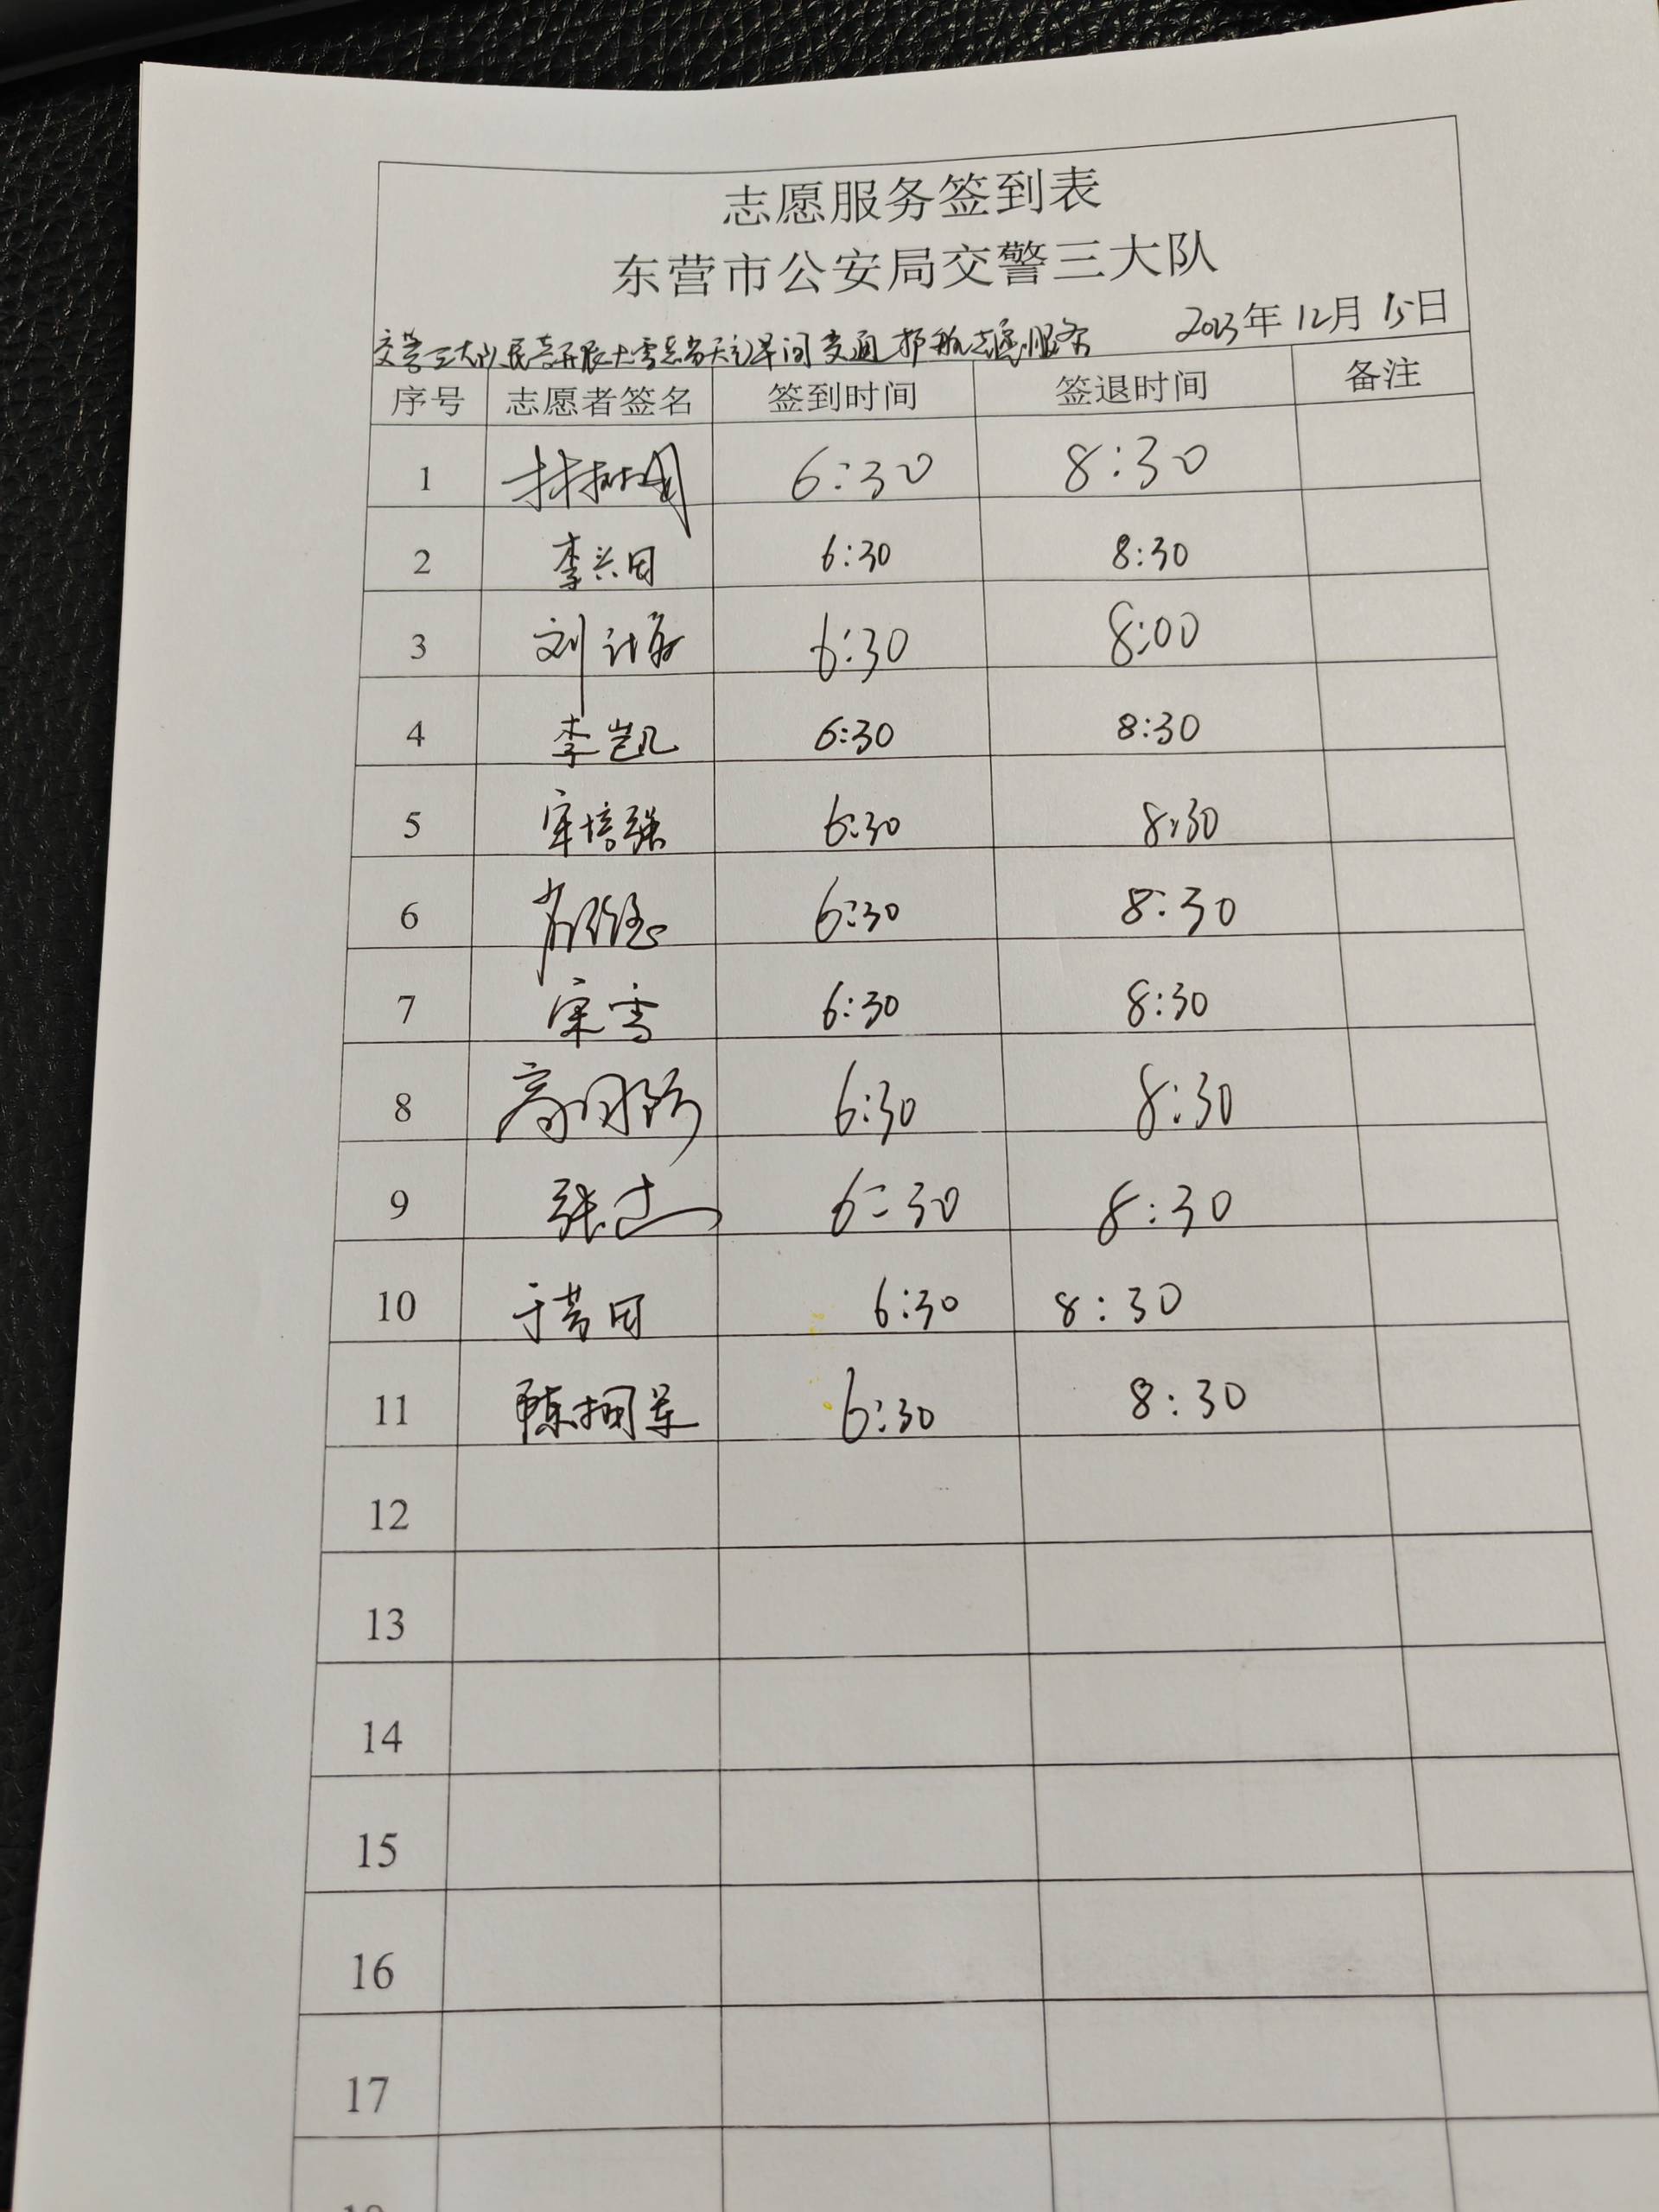 志愿服务签到表
东营市公安局交警三大队
交警三大队民警开展大雪恶劣天气早间交通护航志愿服务 2023年12月15日
序号 志愿者签名 签到时间 签退时间 备注
1 6:30 8:30
2 李兴田 6:30 8:30
3 刘 6:30 8:00
4 李凯 6:30 8:30
5 宋培强 6:30 8:30
6 6:30 8:30
7 宋雪 6:30 8:30
8 高 6:30 8:30
9 张 6:30 8:30
10 于芳田 6:30 8:30
11 陈 军 6:30 8:30
12
13
14
15
16
17